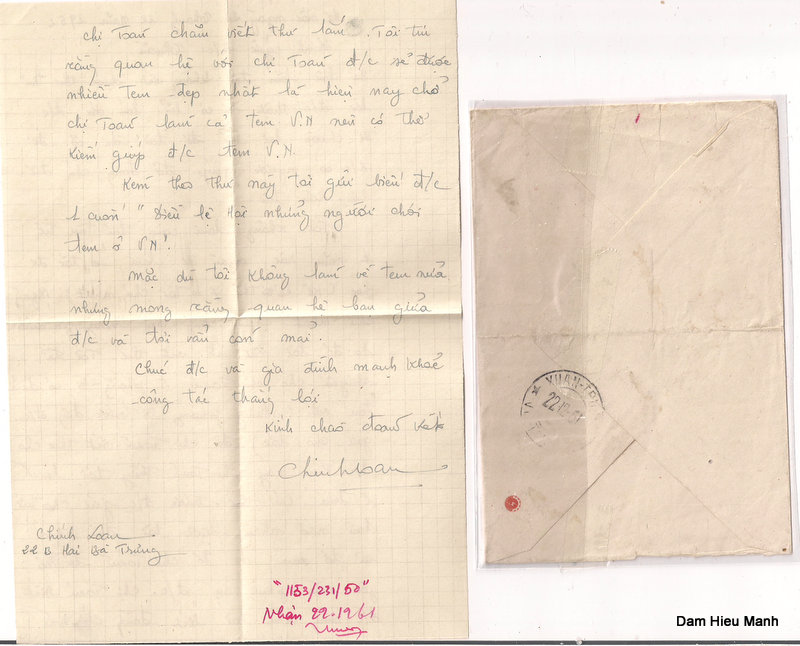 chị Toàn chăm viết thư lắm. Tôi tin
rằng quan hệ với chị Toàn đ/c sẽ được
nhiều tem đẹp nhất là hiện nay chở
chị Toàn làm cả tem V.N nên có thể
kiếm giúp đ/c tem V.N.
Kèm theo thư này tôi gửi biếu đ/c
1 cuốn "Điều lệ Hội những người chơi
tem ở V.N".
Mặc dù tôi không làm về tem nữa
nhưng mong rằng quan hệ bạn giữa
đ/c và tôi vẫn còn mãi.
Chúc đ/c và gia đình mạnh khoẻ
công tác thắng lợi
Kính chào đoàn kết
Chinhloan
Chinh Loan
22B Hai Bà Trưng
"1153/231/50"
Nhận 22-1961
XUAN-
22
Dam Hieu Manh